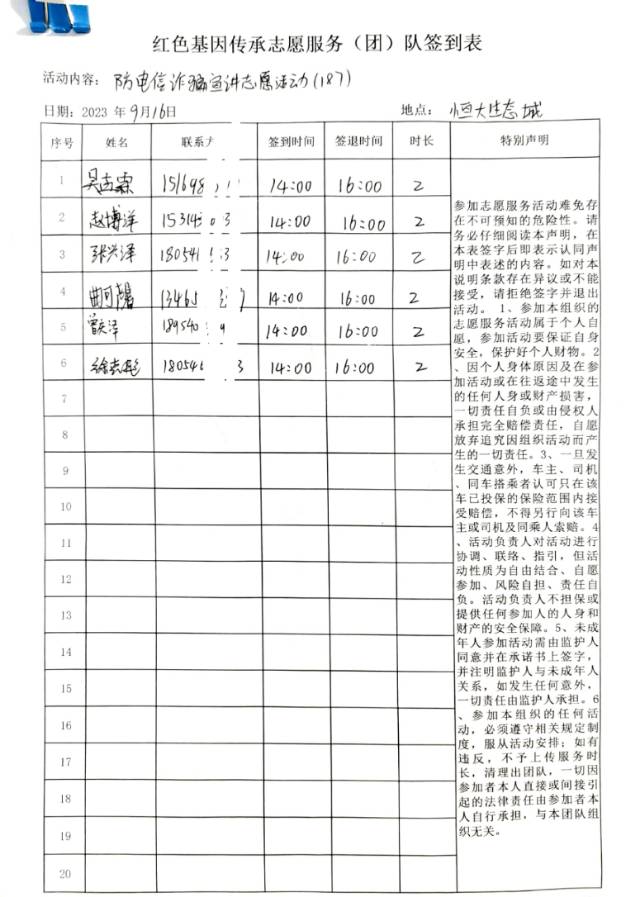 红色基因传承志愿服务（团）队签到表
活动内容：防电信诈骗宣讲志愿活动(187)
日期：2023 年9月16日 地点：恒大生态城
序号 姓名 联系方 签到时间 签退时间 时长 特别声明
1 151698 14:00 16:00 2
2 赵博洋 15314 0 3 14:00 16:00 2
3 张兴泽 180541 3 14:00 16:00 2
4 13465 14:00 16:00 2
5 189540 9 14:00 16:00 2
6 18054 3 14:00 16:00 2
7
8
9
10
11
12
13
14
15
16
17
18
19
20
参加志愿服务活动难免存
在不可预知的危险性。请
务必仔细阅读本声明，在
本表签字后即表示认同声
明中表述的内容。如对本
说明条款存在异议或不能
接受，请拒绝签字并退出
活动。 1、参加本组织的
志愿服务活动属于个人自
愿，参加活动要保证自身
安全，保护好个人财物。2
、因个人身体原因及在参
加活动或在往返途中发生
的任何人身或财产损害，
一切责任自负或由侵权人
承担完全赔偿责任，自愿
放弃追究因组织活动而产
生的一切责任。3、一旦发
生交通意外，车主、司机
、同车搭乘者认可只在该
车已投保的保险范围内接
受赔偿，不得另行向该车
主或司机及同乘人索赔。4
、活动负责人对活动进行
协调、联络、指引，但活
动性质为自由结合、自愿
参加、风险自担、责任自
负。活动负责人不担保或
提供任何参加人的人身和
财产的安全保障。5、未成
年人参加活动需由监护人
同意并在承诺书上签字，
并注明监护人与未成年人
关系，如发生任何意外，
一切责任由监护人承担。6
、参加本组织的任何活
动，必须遵守相关规定制
度，服从活动安排；如有
违反，不予上传服务时
长，清理出团队，一切因
参加者本人直接或间接引
起的法律责任由参加者本
人自行承担，与本团队组
织无关。